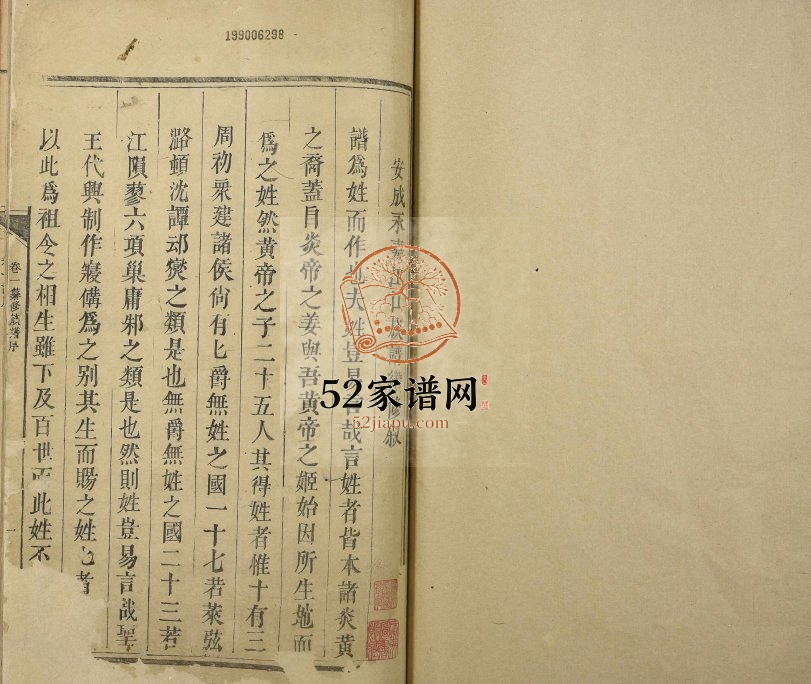 199006298
安成
譜爲姓而作也夫姓豈易言哉言姓者皆本諸炎黃
之裔蓋自炎帝之姜與吾黃帝之姬始因所生地而
爲之姓然黃帝之子二十五人其得姓者惟十有三
周初衆建諸侯尙有匕爵無姓之國一十七若萊弦
潞頓沈譚𨚗㸑之類是也無爵無姓之國二十三若
江隕蓼六項巢庸邪之類是也然則姓豈易言哉聖
王代興制作寖備爲之别其生而賜之姓也者
以此爲祖令之相生雖下及百世而此姓不
卷一 修族譜序
一
52家谱网
52jiapu.com